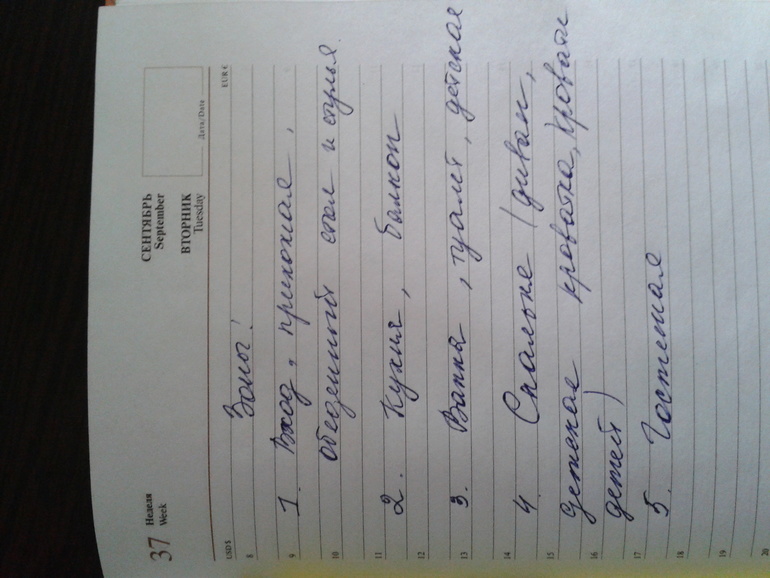 37 Неделя
Week
СЕНТЯБРЬ
September
ВТОРНИК
Tuesday
Дата/Date
USD $
EUR €
8 Зоны:
9 1. Вход, прихожая,
10 обеденный стол и стулья.
11 2. Кухня, балкон
12
13 3. Ванна, туалет, детская
14 4. Спальня (диван,
15 детская кроватка, кровати
16 детей)
17 5. Гостиная
18
19
20